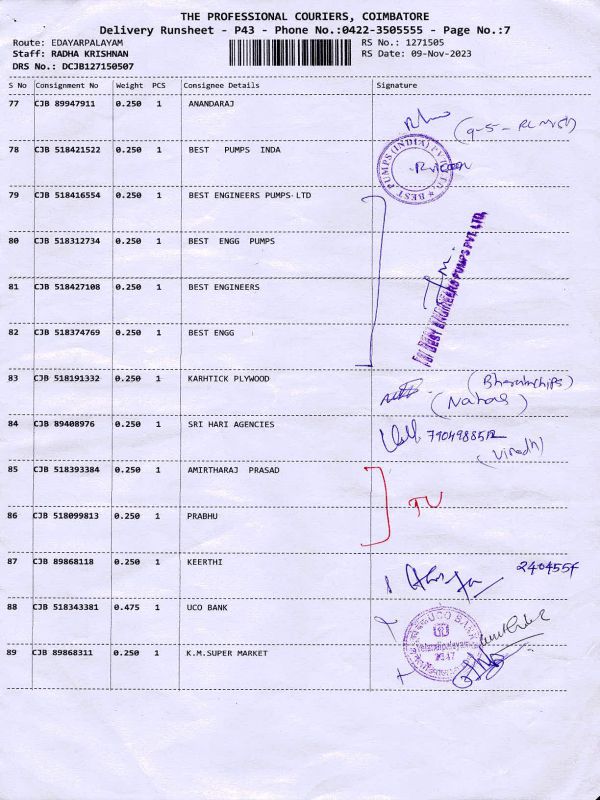 THE PROFESSIONAL COURIERS, COIMBATORE
Delivery Runsheet - P43 - Phone No.:0422-3505555 - Page No.:7
Route: EDAYARPALAYAM RS No.: 1271505
Staff: RADHA KRISHNAN RS Date: 09-Nov-2023
DRS No.: DCJB127150507
S No Consignment No Weight PCS Consignee Details Signature
77 CJB 89947911 0.250 1 ANANDARAJ
78 CJB 518421522 0.250 1 BEST PUMPS INDA
BEST PUMPS (INDIA) PVT LTD
79 CJB 518416554 0.250 1 BEST ENGINEERS PUMPS LTD
80 CJB 518312734 0.250 1 BEST ENGG PUMPS
For BEST ENGINEERS PUMPS PVT. LTD.
81 CJB 518427108 0.250 1 BEST ENGINEERS
82 CJB 518374769 0.250 1 BEST ENGG
83 CJB 518191332 0.250 1 KARHTICK PLYWOOD
84 CJB 89408976 0.250 1 SRI HARI AGENCIES
85 CJB 518393384 0.250 1 AMIRTHARAJ PRASAD
86 CJB 518099813 0.250 1 PRABHU
87 CJB 89868118 0.250 1 KEERTHI
88 CJB 518343381 0.475 1 UCO BANK
UCO BANK
89 CJB 89868311 0.250 1 K.M.SUPER MARKET